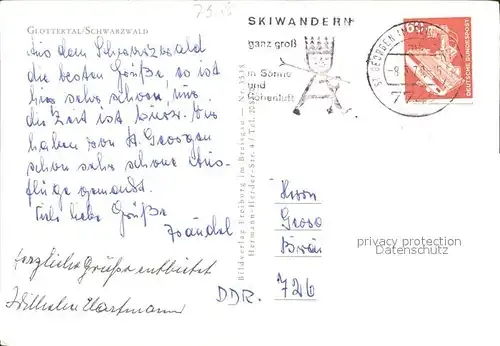 75.-
GLOTTERTAL/SCHWARZWALD
Aus dem Schwarzwald
die besten Grüße, es ist
hier sehr schön, nur
die Zeit ist kurz. Wir
haben von St. Georgen
schon sehr schöne Aus-
flüge gemacht.
Viele liebe Grüße
herzliche Grüße entbietet
Wilhelm Hartmann
Bildverlag Freiburg im Breisgau
Hermann-Herder-Str. 4 / Tel.
SKIWANDERN
ganz groß
in Sonne
und
Höhenluft
ST GEORGEN
77
60
DEUTSCHE BUNDESPOST
Herrn
Georg
726
DDR.
privacy protection
Datenschutz